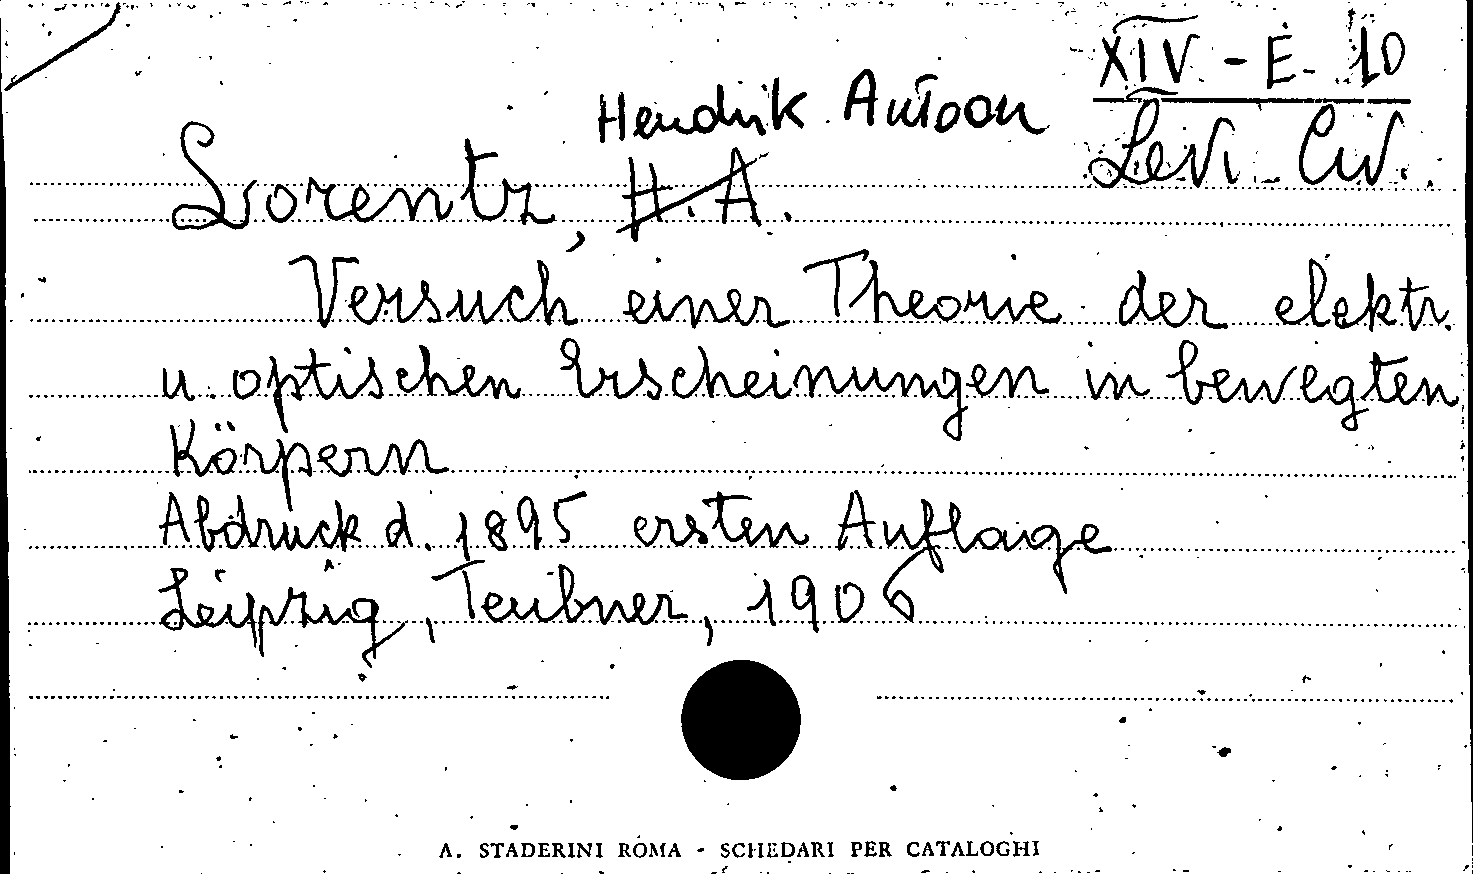 XIV - E - 10
Levi - Civ.
Hendrik Antoon
Lorentz, H. A.
Versuch einer Theorie der elektr.
u. optischen Erscheinungen in bewegten
Körpern
Abdruck d. 1895 ersten Auflage
Leipzig, Teubner, 1906
A. STADERINI ROMA - SCHEDARI PER CATALOGHI